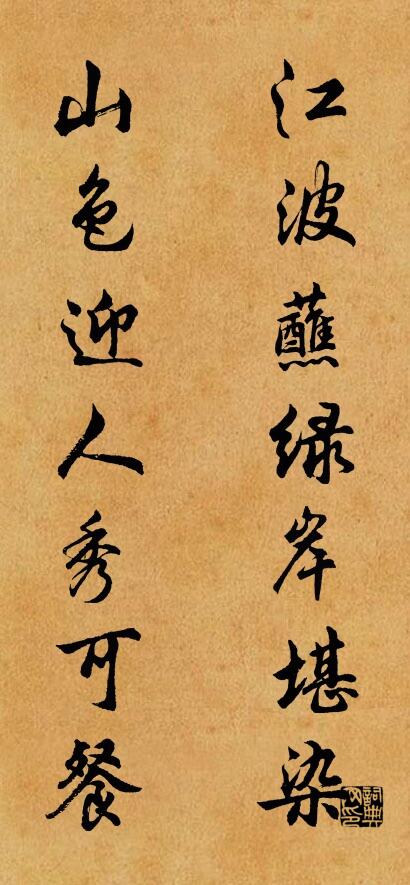 江波蘸绿岸堪染
山色迎人秀可餐